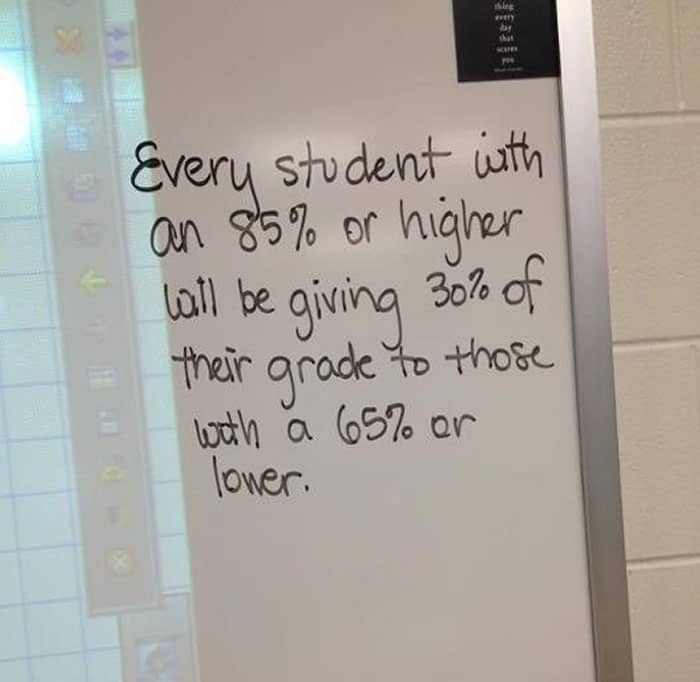 thing
every
day
that
scares
you
Every student with
an 85% or higher
will be giving 30% of
their grade to those
with a 65% or
lower.